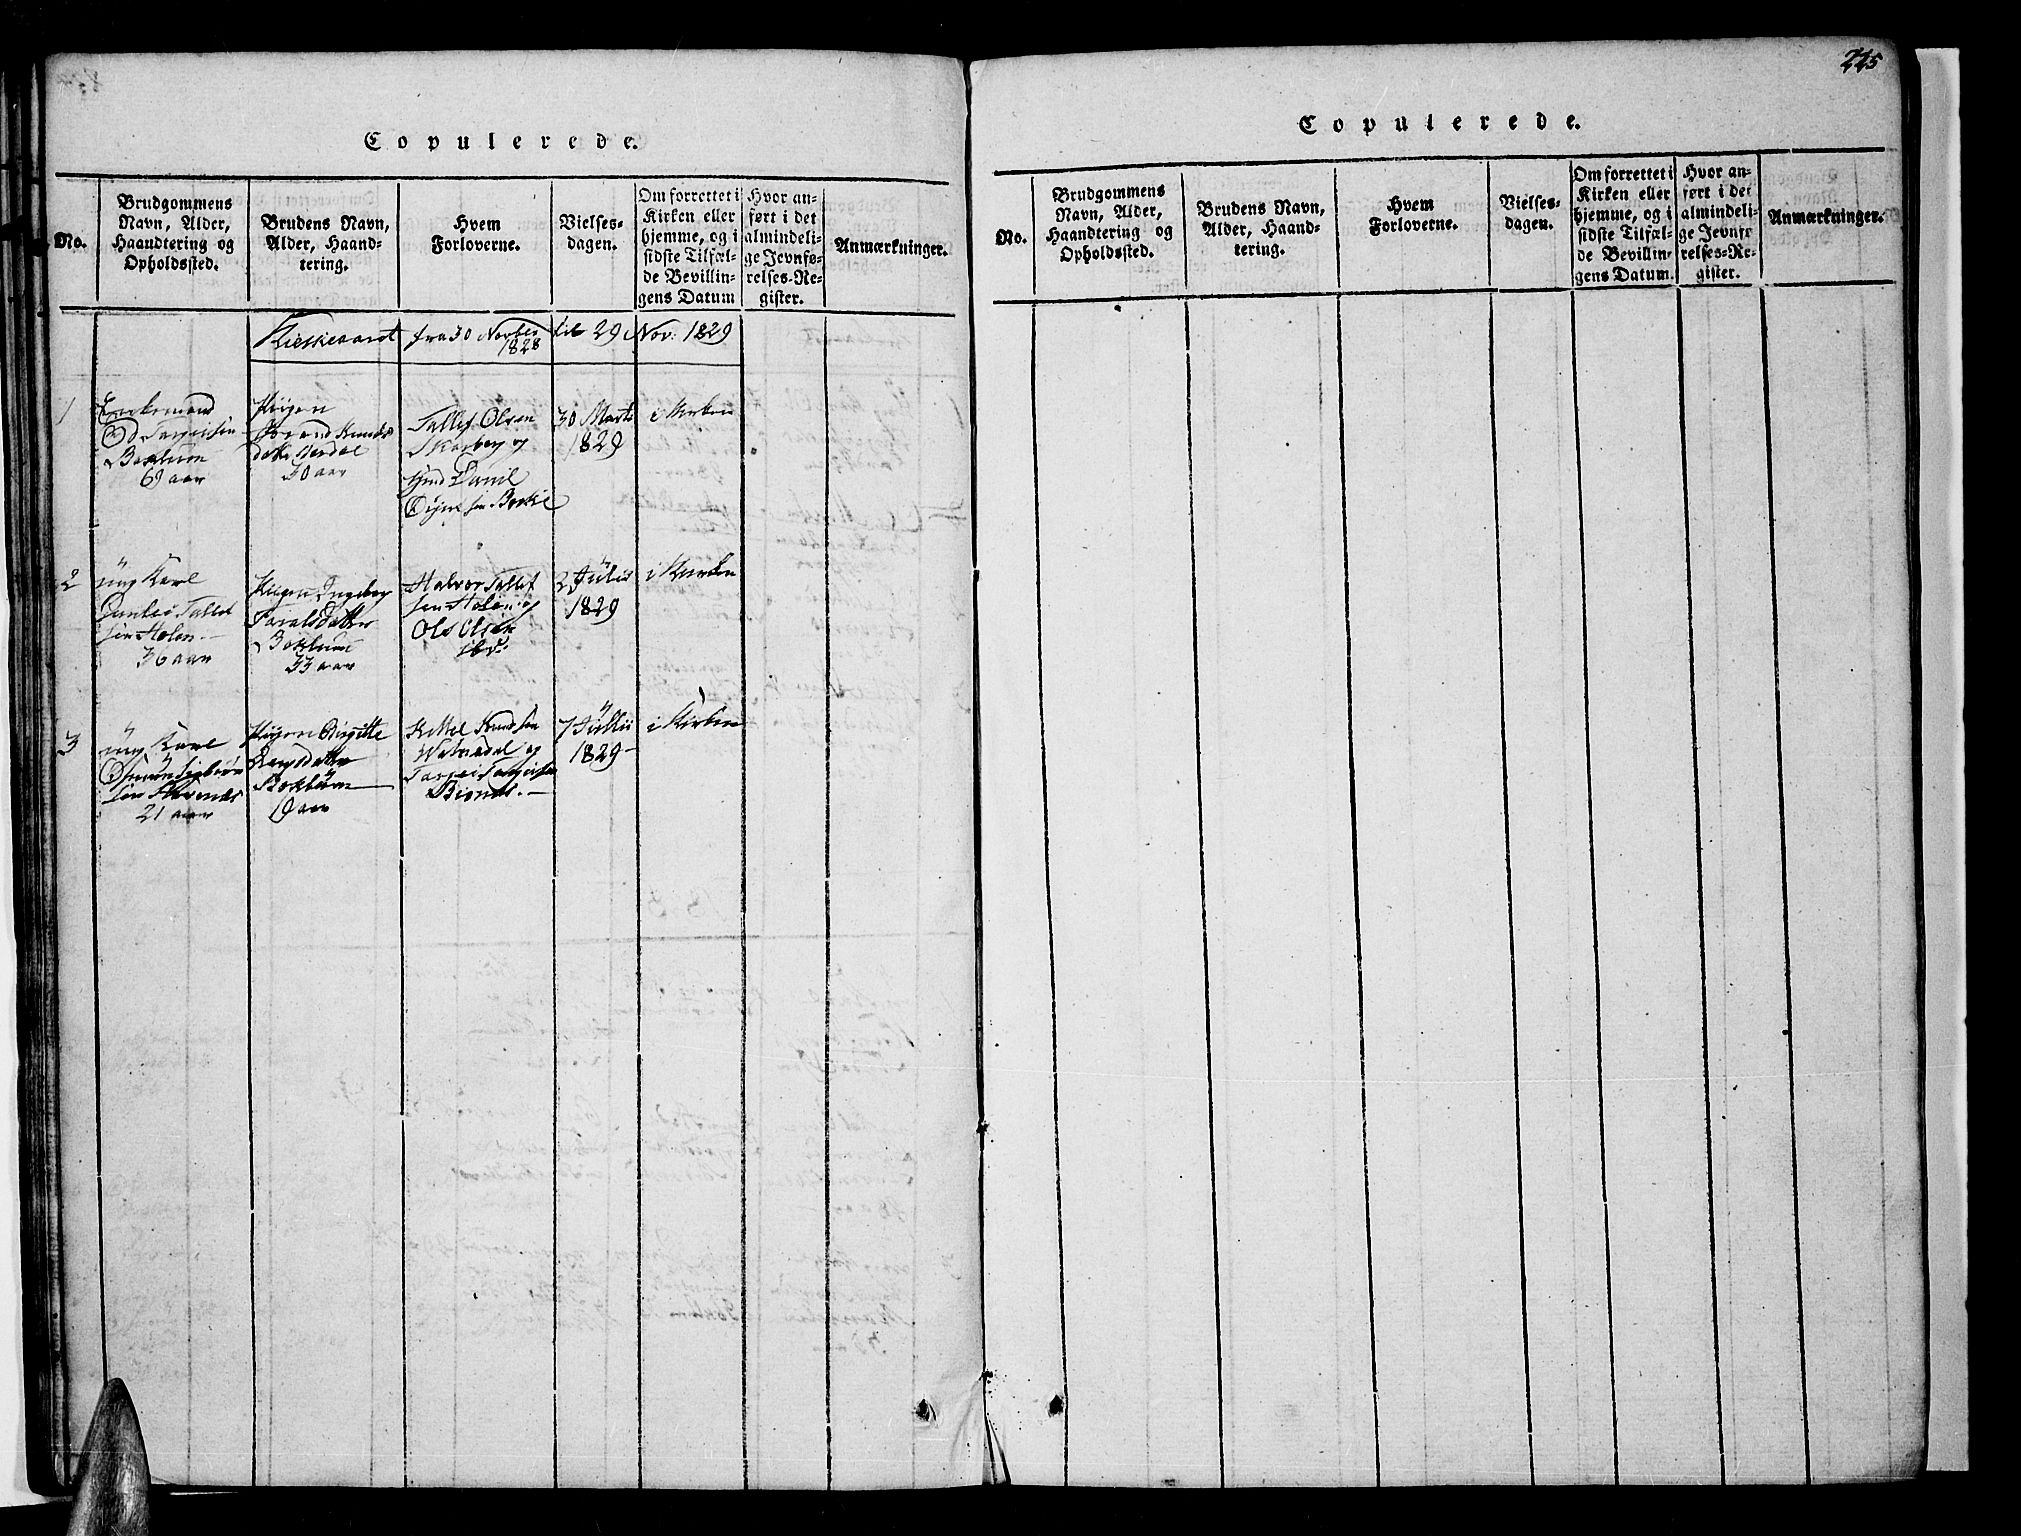 Copulerede.
No.
Brudgommens
Navn, Alder,
Haandtering og
Opholdssted.
Brudens Navn,
Alder, Haand-
tering.
Hvem
Forloverne.
Vielses-
dagen.
Om forrettet i
Kirken eller
hjemme, og i
sidste Tilfæl-
de Bevillin-
gens Datum
Hvor an-
ført i det
almindeli-
ge Jevnfø-
relses-Re-
gister.
Anmærkninger.
fra 30 Novber 1828 til 29 Nov: 1829
1
Enkemand
Od Tarjeisen
Boklum
69 aar
Pigen
Knuds
datter
30 aar
Tallef Olsen
Skarberg og
Daniel
30 Marts
1829
i Kirken
2
ung Karl
Tallef
sen Holen
36 aar
Pigen Ingebor
Taraldsdatter
Boklum
33 aar
Halvor Tallef
sen Holen og
Ols Olsen
ibd:
Julii
1829
i Kirken
3
ung Karl
21 aar
Pigen Birgitte
Boklum
19 aar
Kittel Knudsen
og
Tarjei Tarjeisen
7 Julii
1829
i Kirken
225
Copulerede.
No.
Brudgommens
Navn, Alder,
Haandtering og
Opholdssted.
Brudens Navn,
Alder, Haand-
tering.
Hvem
Forloverne.
Vielses-
dagen.
Om forrettet i
Kirken eller
hjemme, og i
sidste Tilfæl-
de Bevillin-
gens Datum.
Hvor an-
ført i det
almindeli-
ge Jevnfø-
relses-Re-
gister.
Anmærkninger.